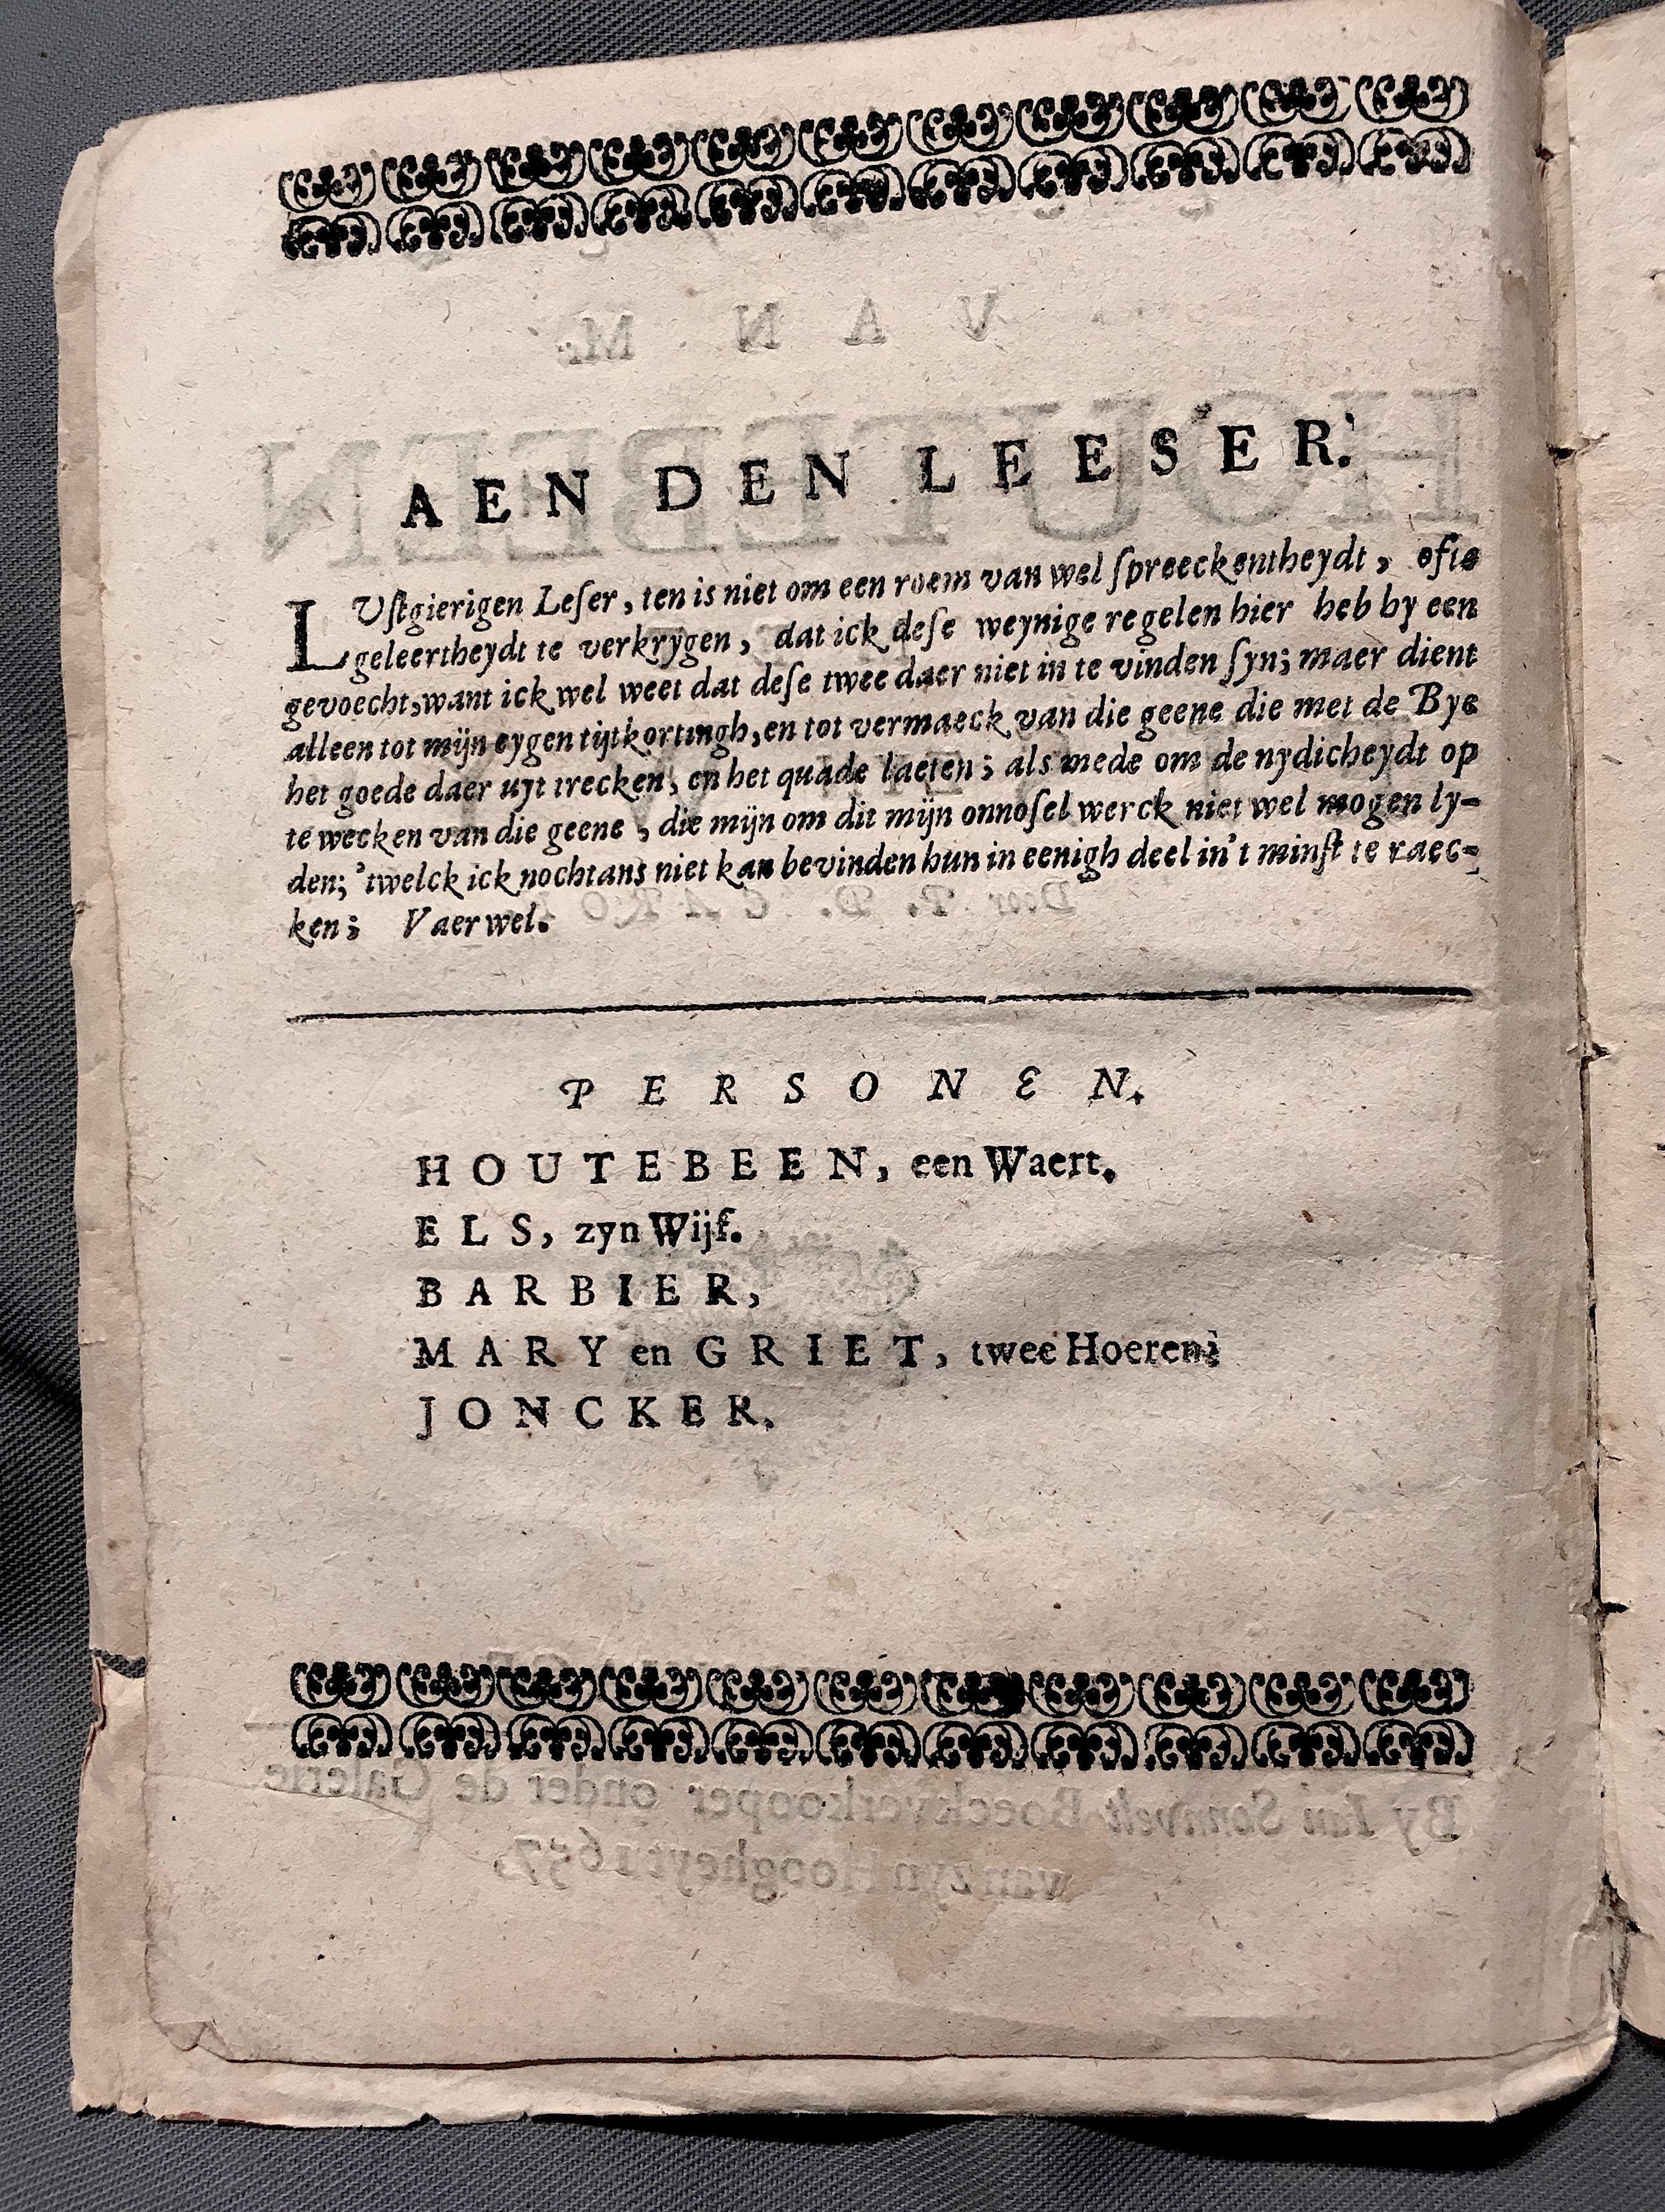 AEN DEN LEESER.
LUſtgierigen Leſer, ten is niet om een roem van wel ſpreeckentheydt, ofte
geleertheydt te verkrygen, dat ick deſe weynige regelen hier heb by een
gevoecht, want ick wel weet dat deſe twee daer niet in te vinden ſyn; maer dient
alleen tot mijn eygen tijtkortingh, en tot vermaeck van die geene die met de Bye
het goede daer uyt trecken, en het quade laeten; als mede om de nydicheydt op
te wecken van die geene, die mijn om dit mijn onnoſel werck niet wel mogen ly-
den; 'twelck ick nochtans niet kan bevinden hun in eenigh deel in't minſt te raec-
ken; Vaer wel.
PERSONEN.
HOUTEBEEN, een Waert.
ELS, zyn Wijf.
BARBIER,
MARY en GRIET, twee Hoeren;
JONCKER.